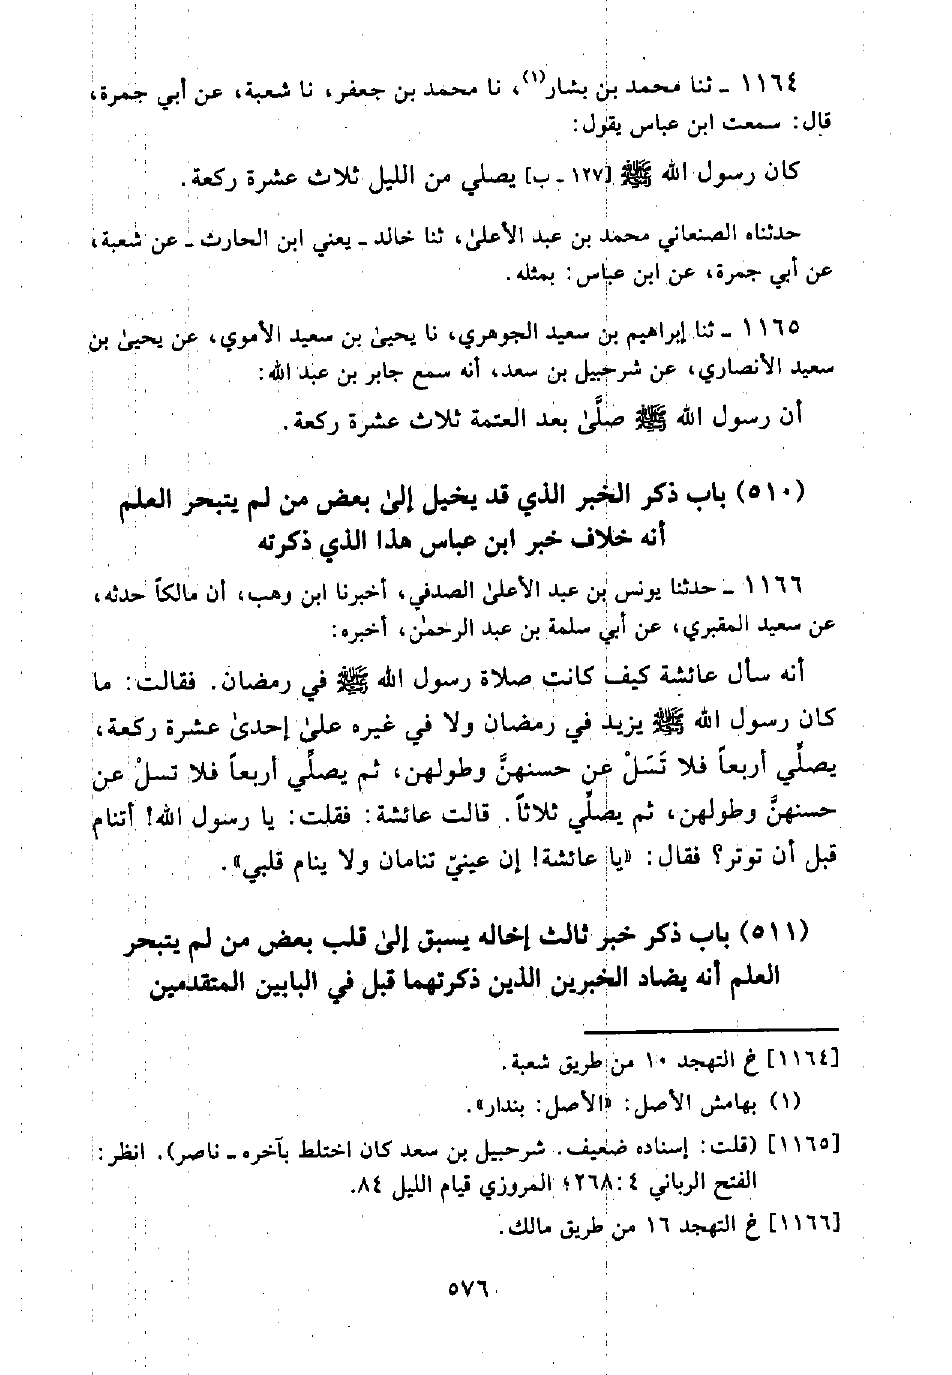 ١١٦٤ ـ ثنا محمد بن بشار(١)، نا محمد بن جعفر، نا شعبة، عن أبي جمرة،
قال: سمعت ابن عباس يقول:
كان رسول الله ﷺ [١٢٧ ـ ب] يصلي من الليل ثلاث عشرة ركعة.
حدثناه الصنعاني محمد بن عبد الأعلىٰ، ثنا خالد ـ يعني ابن الحارث ـ عن شعبة،
عن أبي جمرة، عن ابن عباس: بمثله.
١١٦٥ ـ ثنا إبراهيم بن سعيد الجوهري، نا يحيىٰ بن سعيد الأموي، عن يحيىٰ بن
سعيد الأنصاري، عن شرحبيل بن سعد، أنه سمع جابر بن عبد الله:
أن رسول الله ﷺ صلَّىٰ بعد العتمة ثلاث عشرة ركعة.
(٥١٠) باب ذكر الخبر الذي قد يخيل إلىٰ بعض من لم يتبحر العلم
أنه خلاف خبر ابن عباس هذا الذي ذكرته
١١٦٦ ـ حدثنا يونس بن عبد الأعلىٰ الصدفي، أخبرنا ابن وهب، أن مالكاً حدثه،
عن سعيد المقبري، عن أبي سلمة بن عبد الرحمٰن، أخبره:
أنه سأل عائشة كيف كانت صلاة رسول الله ﷺ في رمضان. فقالت: ما
كان رسول الله ﷺ يزيد في رمضان ولا في غيره علىٰ إحدىٰ عشرة ركعة،
يصلِّي أربعاً فلا تَسَلْ عن حسنهنَّ وطولهن، ثم يصلِّي أربعاً فلا تسلْ عن
حسنهنَّ وطولهن، ثم يصلِّي ثلاثاً. قالت عائشة: فقلت: يا رسول الله! أتنام
قبل أن توتر؟ فقال: «يا عائشة! إن عينيّ تنامان ولا ينام قلبي».
(٥١١) باب ذكر خبر ثالث إخاله يسبق إلىٰ قلب بعض من لم يتبحر
العلم أنه يضاد الخبرين الذين ذكرتهما قبل في البابين المتقدمين
[١١٦٤] خ التهجد ١٠ من طريق شعبة.
(١) بهامش الأصل: «الأصل: بندار».
[١١٦٥] (قلت: إسناده ضعيف. شرحبيل بن سعد كان اختلط بآخره ـ ناصر). انظر:
الفتح الرباني ٤: ٢٦٨؛ المروزي قيام الليل ٨٤.
[١١٦٦] خ التهجد ١٦ من طريق مالك.
٥٧٦